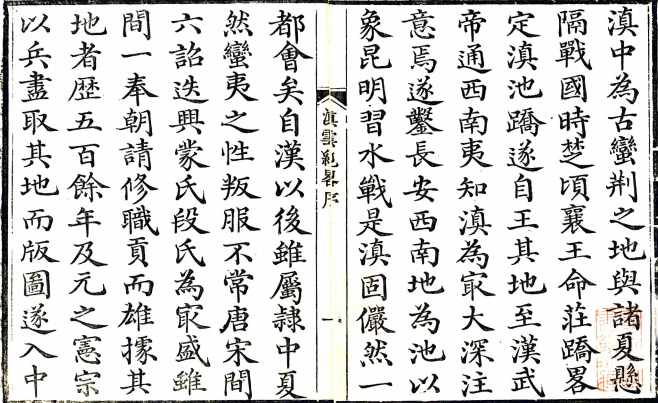 滇中為古蠻荆之地與諸夏懸
隔戰國時楚頃襄王命莊蹻畧
定滇池蹻遂自王其地至漢武
帝通西南夷知滇為㝡大深注
意焉遂鑿長安西南地為池以
象昆明習水戰是滇固儼然一
滇雲紀畧序
一
都會矣自漢以後雖屬隷中夏
然蠻夷之性叛服不常唐宋間
六詔迭興蒙氏段氏為㝡盛雖
間一奉朝請修職貢而雄據其
地者歴五百餘年及元之憲宗
以兵盡取其地而版圖遂入中